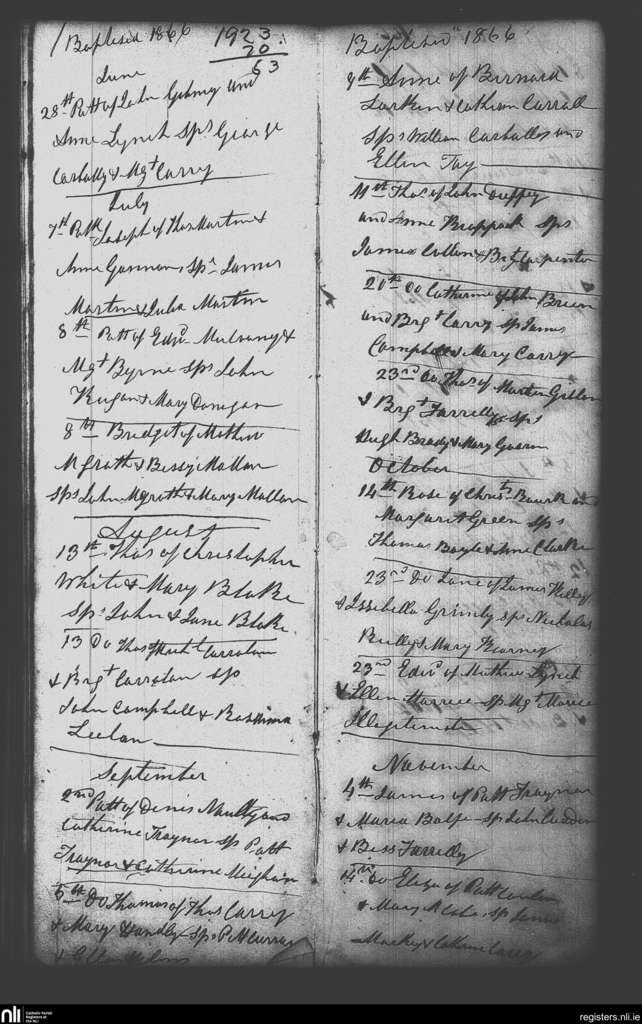 Baptised 1866
1923
20
63
June
28th Patt of John and
Anne Lynch Sps George
Carbally & Mgt Carry
July
7th Patk Joseph of Thos Martin &
Anne Sps James
Martin & Julia Martin
8th Patt of Edwd Mulvany &
Mgt Byrne Sps John
Keegan & Mary Donegan
8th Bridget of Mathew
McGrath & Bessy Mallon
Sps John McGrath & Mary Mallon
August
13th Thos of Christopher
White & Mary Blake
Sps John & Jane Blake
13 Do Thos of Carrolan
& Brgt Carrolan Sps
John Campbell &
Leelan
September
2nd Patt of Denis Naulty and
Catherine Traynor Sps Patt
Traynor & Catherine Meighan
5th Do Thomas of Thos Carry
& Mary Sps Patt Curran
& Ellen
Baptised 1866
9th Anne of Bernard
Larken & Catherine Carroll
Sps William Carbally and
Ellen Tay
11th Thos of John Duffey
and Anne Brappock Sps
James Cullen & Brgt Carpenter
20th Do Catherine of John Breen
and Brgt Carry Sps James
Campbell & Mary Carry
23rd Do Thos of Martin
& Brgt Farrelly Sps
Hugh Brady & Mary
October
14th Rose of Christr and
Margaret Green Sps
Thomas Boyle & Anne Clarke
23rd Do Jane of James Kelly
& Issibella Grimly Sps Nicholas
Reilly & Mary Kearney
23rd Edwd of Mathew Lynch
& Ellen Sps Mgt
Illegitimate
November
4th James of Patt Traynor
& Maria Balfe Sps John
& Bess Farrelly
14th Do Eliza of Patt
& Mary Sps James
Mackey & Catherine Carry
nli
Catholic Parish
Registers at
the NLI
registers.nli.ie